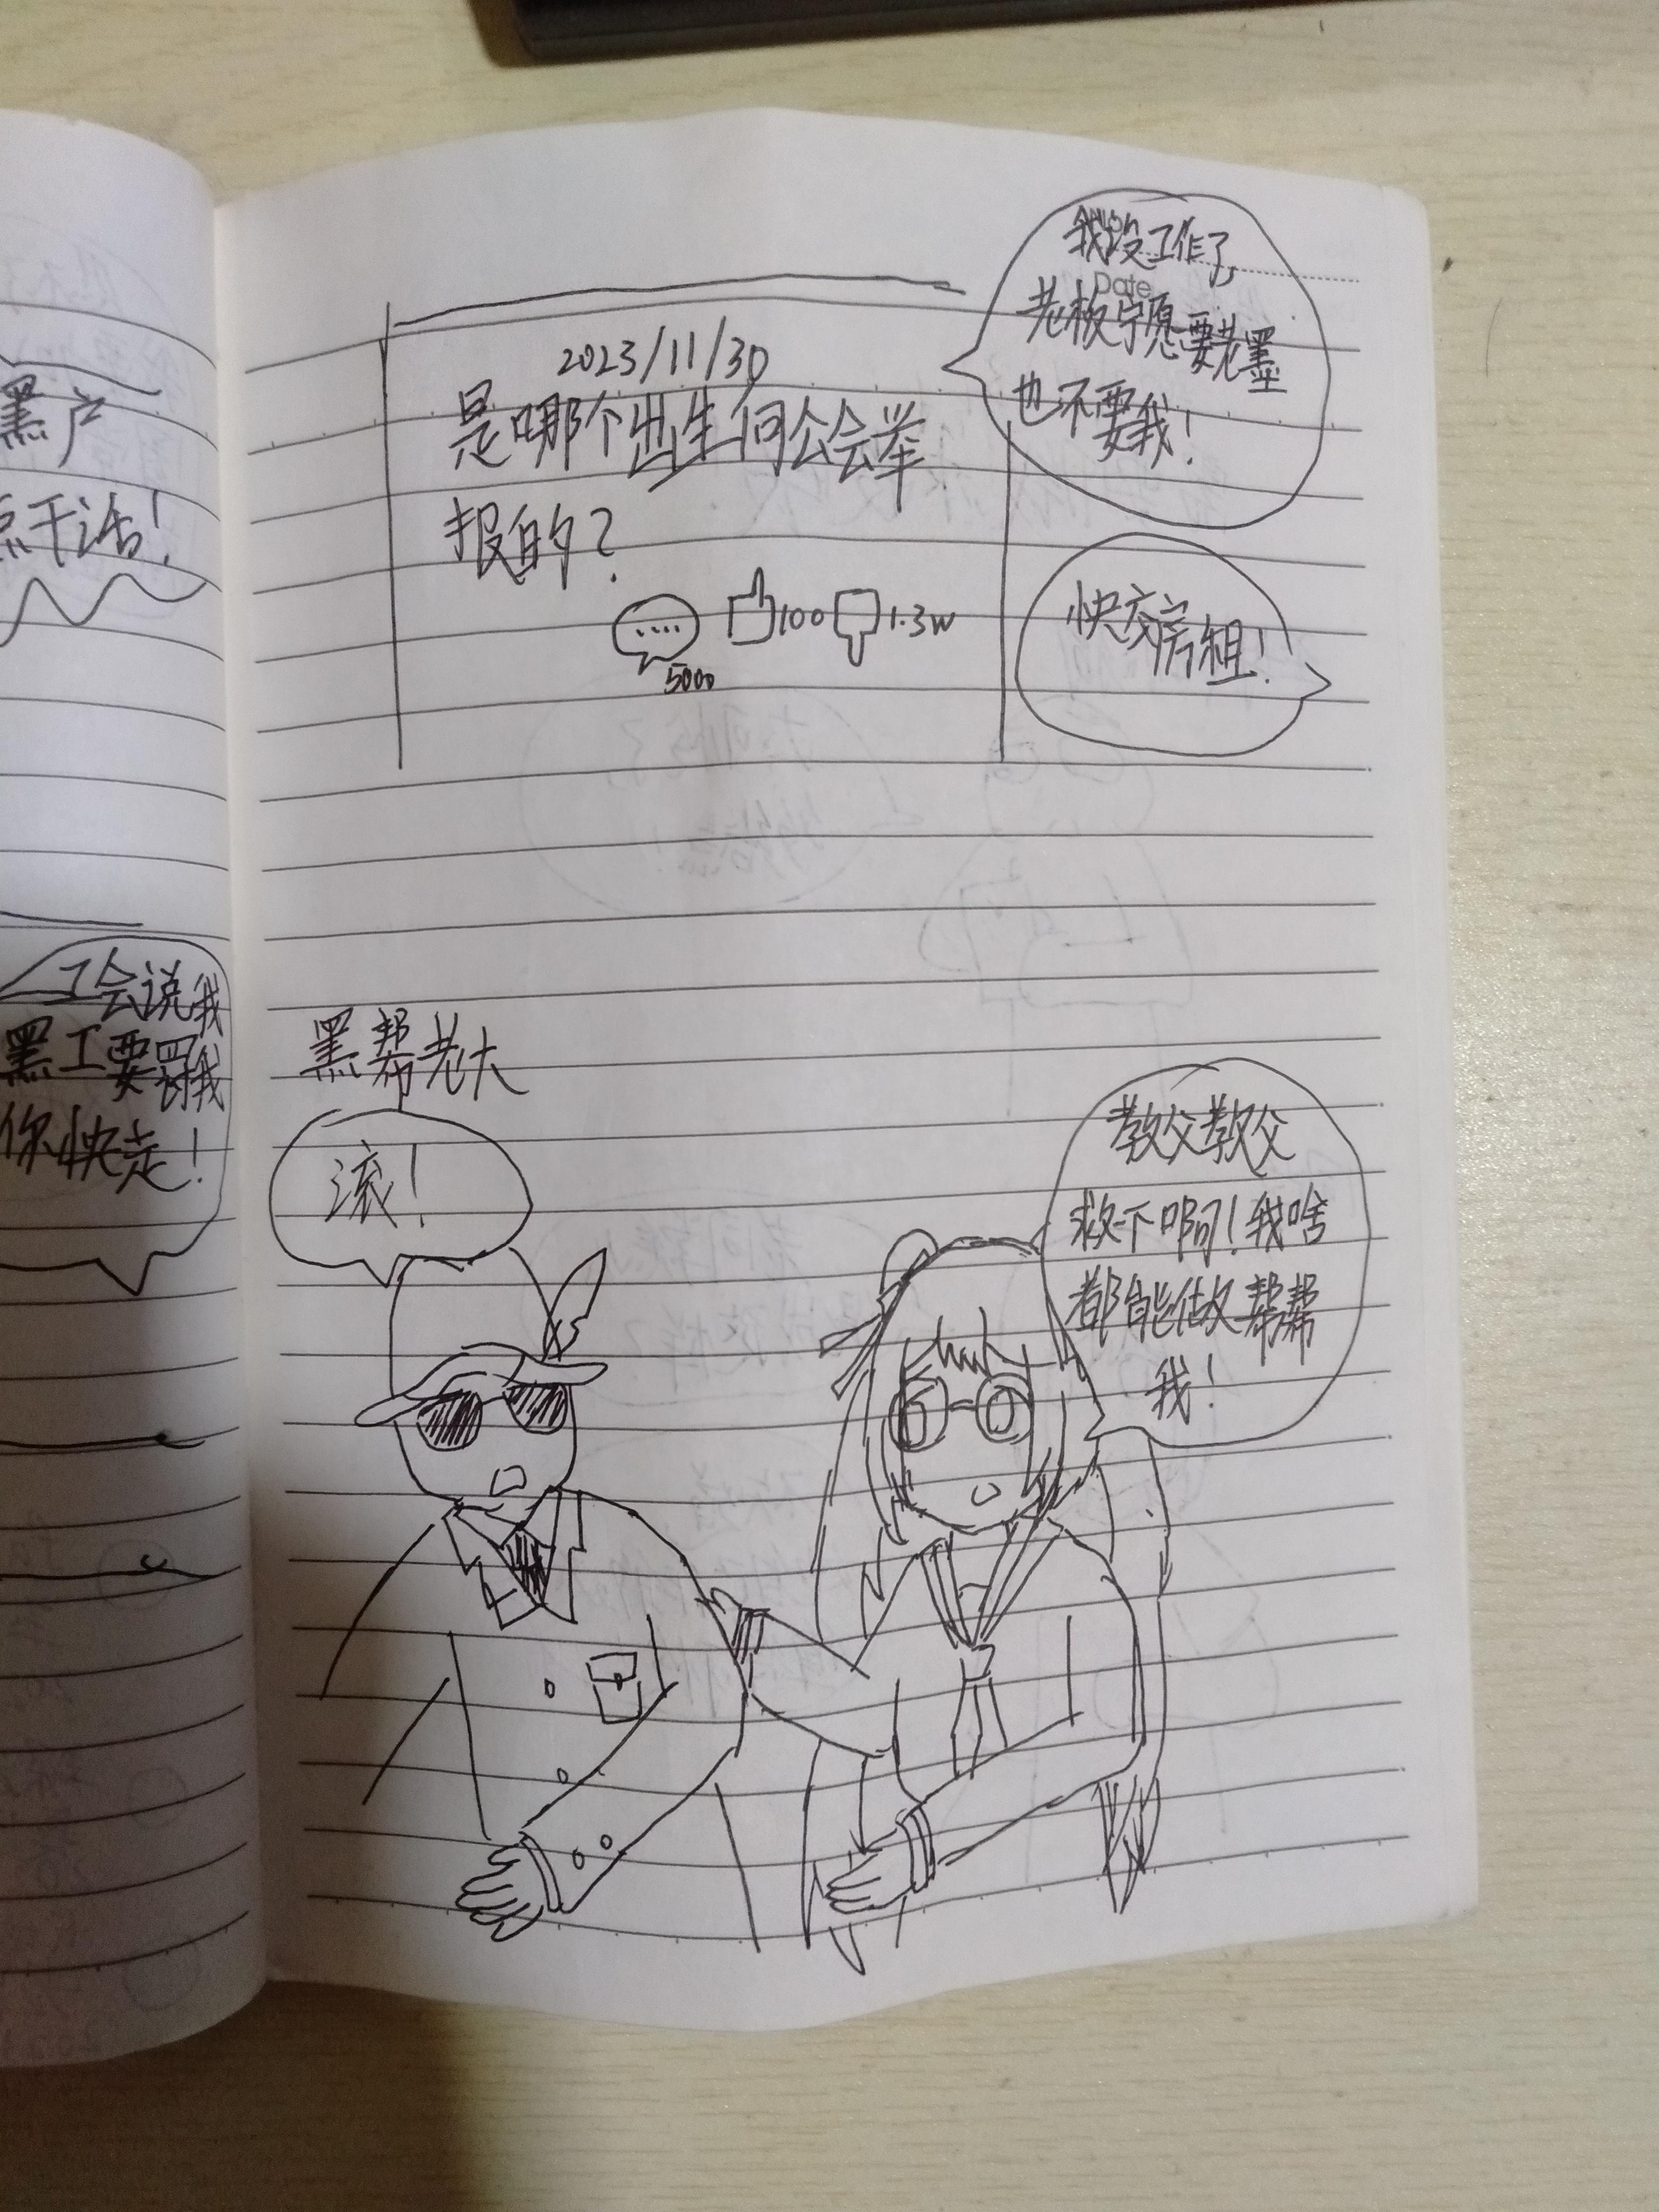 黑户
点干活！
工会说我
黑工要罚我
你快走！
我没工作了
Date
老板宁愿要老墨
也不要我！
2023/11/30
是哪个出生向公会举
报的？
5000
100
1.3w
快交房租！
黑帮老大
滚！
教父教父
救一下啊！我啥
都能做帮帮
我！